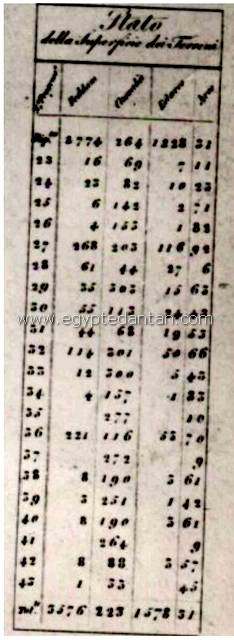 Stato
della Superficie dei Terreni
Feddan Ectares Are
Rip.to 2774 264 1228 31
23 16 69 7 11
24 23 82 10 23
25 6 142 2 71
26 4 153 1 82
27 268 203 116 92
28 61 44 27 6
29 35 303 15 63
30 55
www.egyptedantan.com
31 44 68 19 53
32 114 301 50 66
33 12 300 5 43
34 4 157 1 83
35 277 10
36 221 116 53 70
37 272 9
38 8 190 3 61
39 3 251 1 42
40 8 190 3 61
41 264 9
42 8 88 3 57
43 1 33 45
Tot.e 3576 223 1578 31